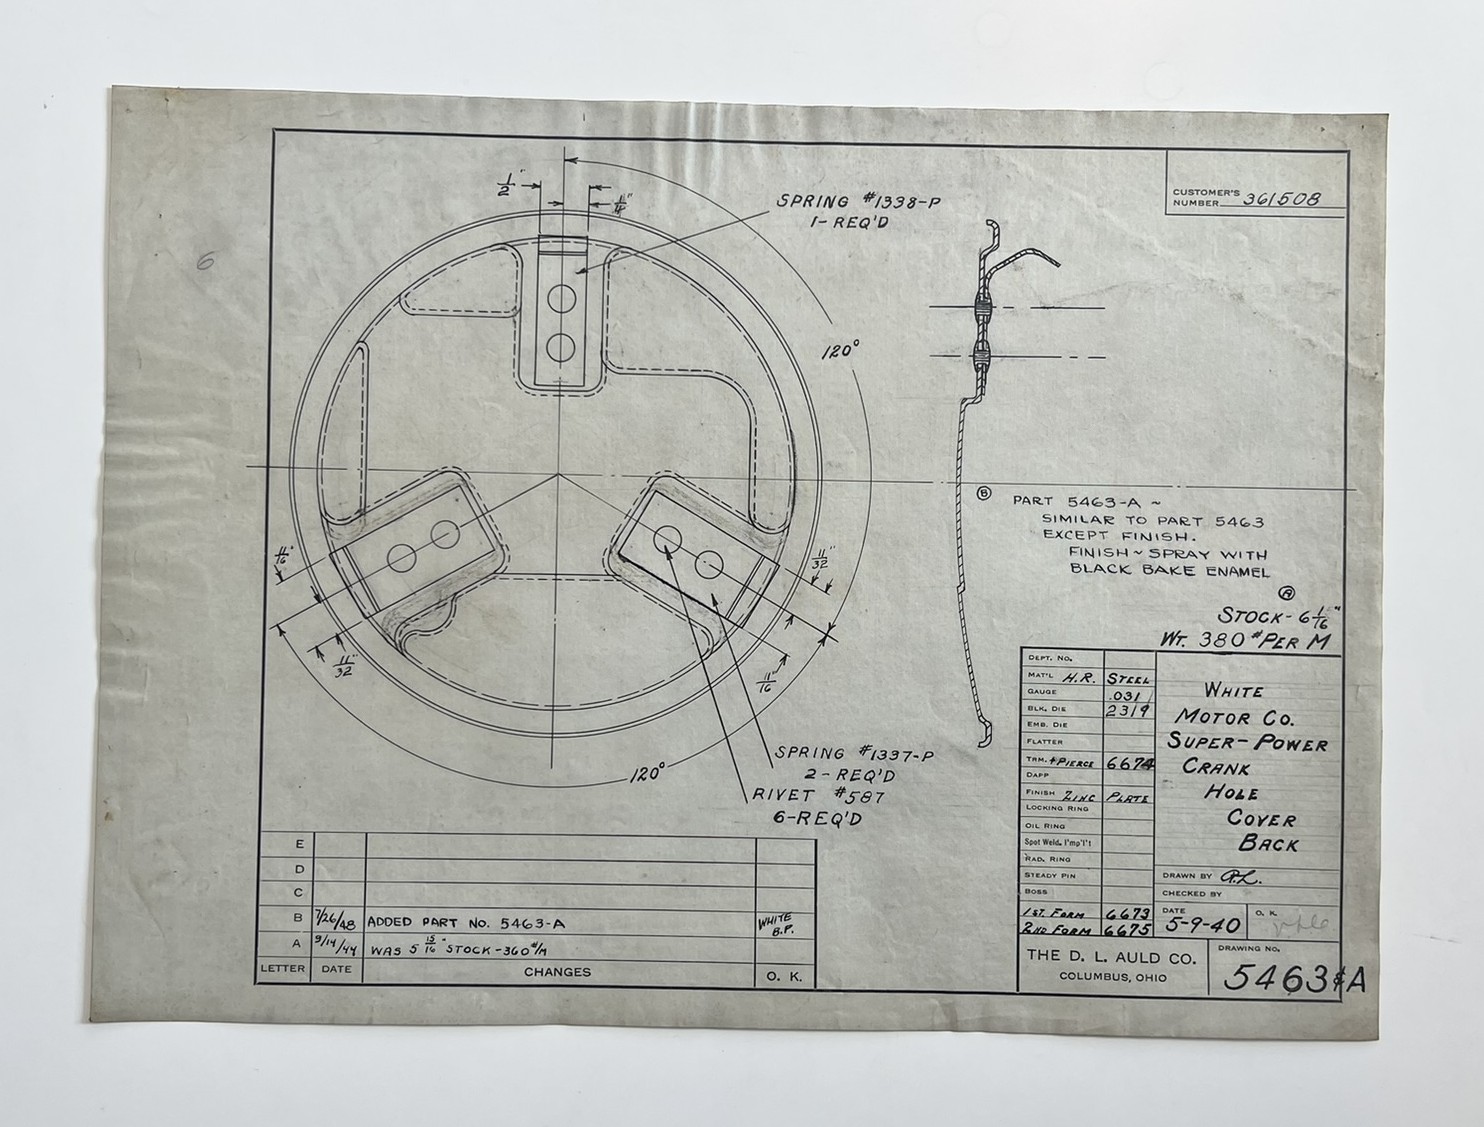 CUSTOMER'S
NUMBER 361508
1/2"
SPRING #1338-P
1-REQ'D
6
120°
Ⓑ PART 5463-A ~
SIMILAR TO PART 5463
EXCEPT FINISH.
FINISH ~ SPRAY WITH
BLACK BAKE ENAMEL
Ⓐ
STOCK - 6 1/16"
WT. 380 # PER M
11/16"
11/32"
11/32"
11/16"
SPRING #1337-P
2-REQ'D
120°
RIVET #587
6-REQ'D
DEPT. NO.
MAT'L H.R. STEEL
GAUGE .031
BLK. DIE 2319
EMB. DIE
FLATTER
TRM. & PIERCE 6674
DAPP
FINISH ZINC PLATE
LOCKING RING
OIL RING
Spot Weld. I'mp'l't
RAD. RING
STEADY PIN
BOSS
1ST. FORM 6673
2ND FORM 6675
WHITE
MOTOR CO.
SUPER-POWER
CRANK
HOLE
COVER
BACK
DRAWN BY
CHECKED BY
DATE 5-9-40
O. K.
THE D. L. AULD CO.
COLUMBUS, OHIO
DRAWING NO.
5463 & A
E
D
C
B 7/26/48 ADDED PART NO. 5463-A WHITE B.P.
A 9/14/44 WAS 5 15/16" STOCK - 360 #/M
LETTER DATE CHANGES O. K.